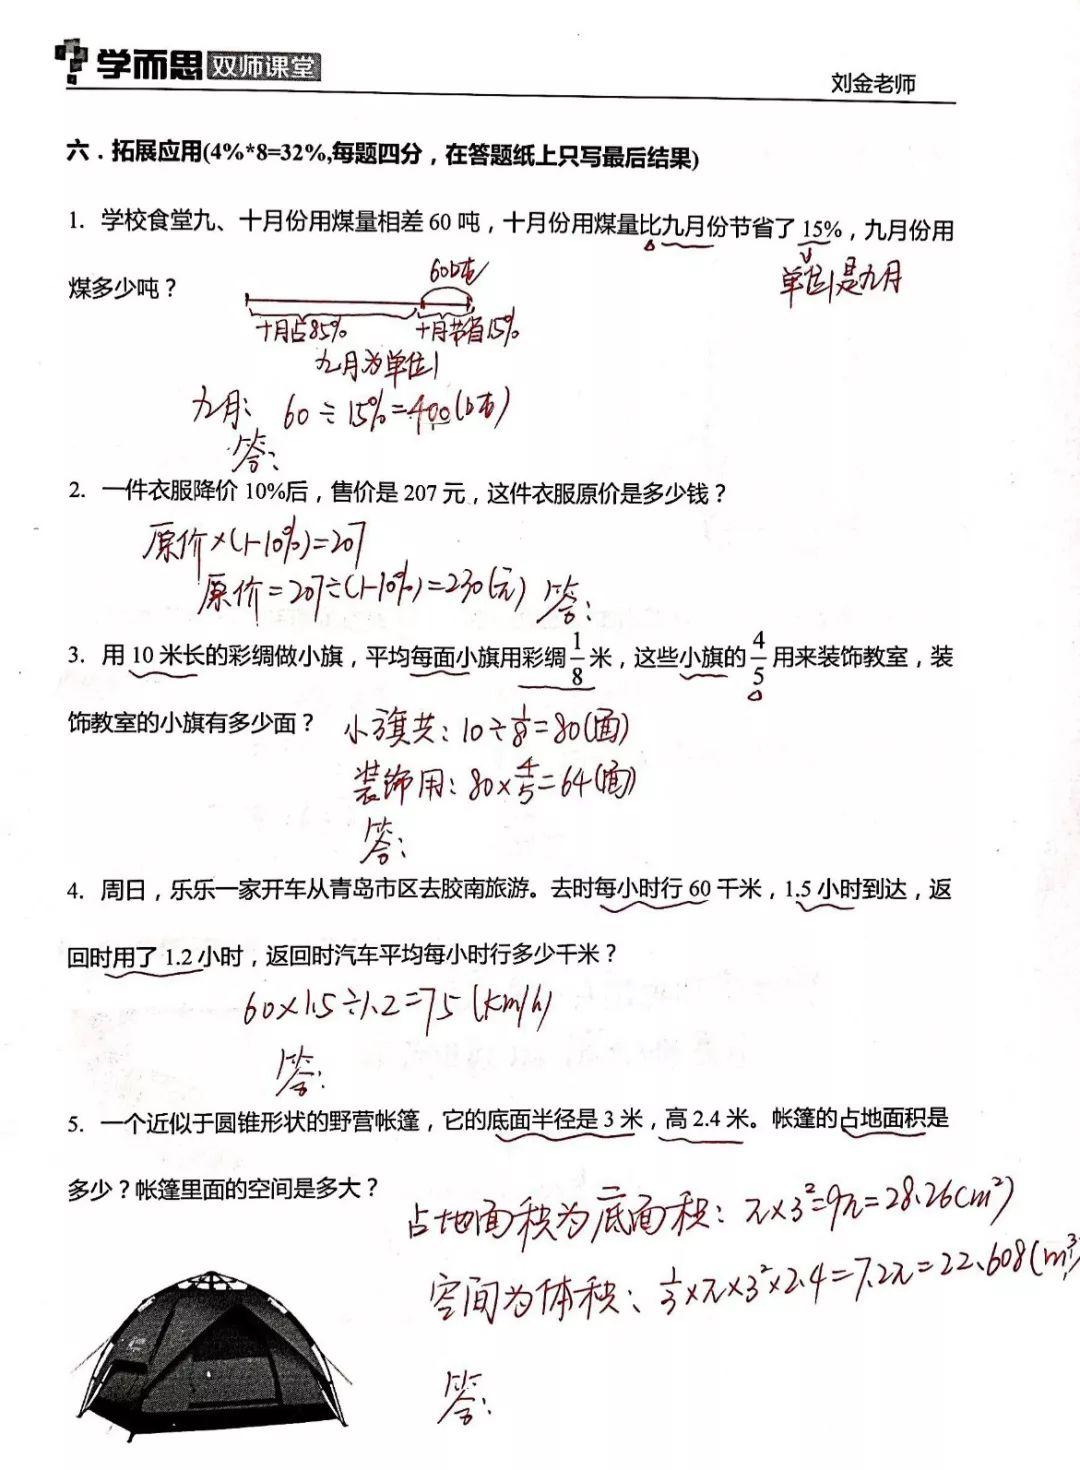 学而思 双师课堂
刘金老师
六．拓展应用(4%*8=32%,每题四分，在答题纸上只写最后结果)
1. 学校食堂九、十月份用煤量相差 60 吨，十月份用煤量比九月份节省了 15%，九月份用
煤多少吨？
60吨
单位1是九月
十月占85% 十月节省15%
九月为单位1
九月：60÷15%=400(吨)
答：
2. 一件衣服降价 10%后，售价是 207 元，这件衣服原价是多少钱？
原价×(1-10%)=207
原价=207÷(1-10%)=230(元) 答：
3. 用 10 米长的彩绸做小旗，平均每面小旗用彩绸1/8米，这些小旗的4/5用来装饰教室，装
饰教室的小旗有多少面？
小旗共：10÷1/8=80(面)
装饰用：80×4/5=64(面)
答：
4. 周日，乐乐一家开车从青岛市区去胶南旅游。去时每小时行 60 千米，1.5 小时到达，返
回时用了 1.2 小时，返回时汽车平均每小时行多少千米？
60×1.5÷1.2=75(km/h)
答：
5. 一个近似于圆锥形状的野营帐篷，它的底面半径是 3 米，高 2.4 米。帐篷的占地面积是
多少？帐篷里面的空间是多大？
占地面积为底面积：π×3²=9π=28.26(m²)
空间为体积：1/3×π×3²×2.4=7.2π=22.608(m³)
答：